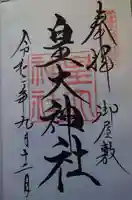 奉拝
御屋敷
皇大神社
令和七年九月十二日